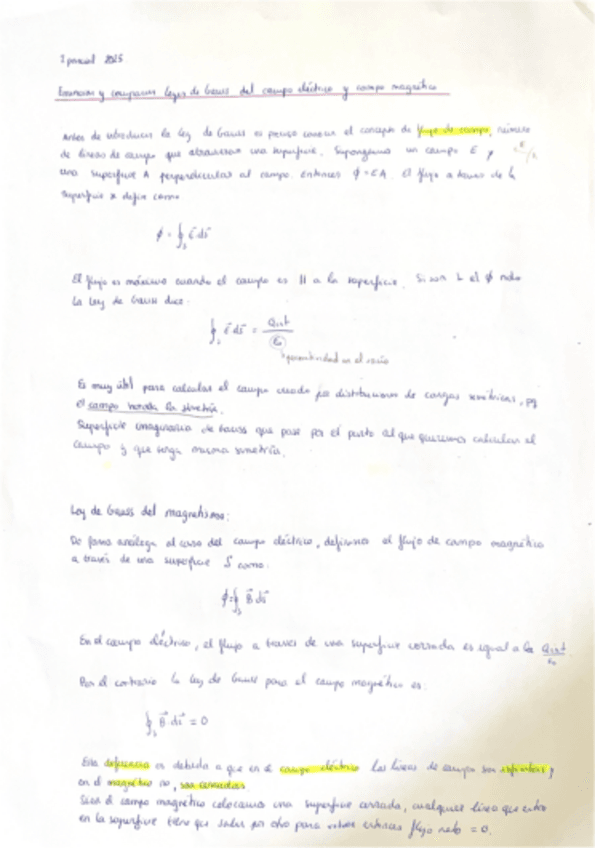 1 parcial 2025
Enunciar y comparar leyes de Gauss del campo eléctrico y campo magnético
Antes de introducir la ley de Gauss es preciso conocer el concepto de flujo de campo, número
de líneas de campo que atraviesan una superficie. Supongamos un campo E y
una superficie A perpendicular al campo. Entonces ϕ = EA. El flujo a traves de la
superficie se define como
ϕ = ∮s E⃗ ds⃗
El flujo es máximo cuando el campo es II a la superficie. Si son ⊥ el ϕ nulo
La Ley de Gauss dice:
∮s E⃗ ds⃗ = Qint/ε0
permitividad en el vacío
Es muy útil para calcular el campo creado por distribuciones de cargas simétricas, pq
el campo hereda la simetría.
Superficie imaginaria de Gauss que pase por el punto al que queremos calcular el
campo y que tenga misma simetría.
Ley de Gauss del magnetismo:
De forma análoga al caso del campo eléctrico, definimos el flujo de campo magnético
a través de una superficie S como:
ϕ = ∮s B⃗ ds⃗
En el campo eléctrico, el flujo a traves de una superficie cerrada es igual a la Qint/ε0.
Por el contrario la ley de Gauss para el campo magnético es:
∮s B⃗ · ds⃗ = 0
Esta diferencia es debida a que en el campo eléctrico las líneas de campo son abiertas y
en el magnético no, son cerradas
Si en el campo magnético colocamos una superficie cerrada, cualquier línea que entre
en la superficie tiene que salir por otro para volver entonces flujo neto = 0.